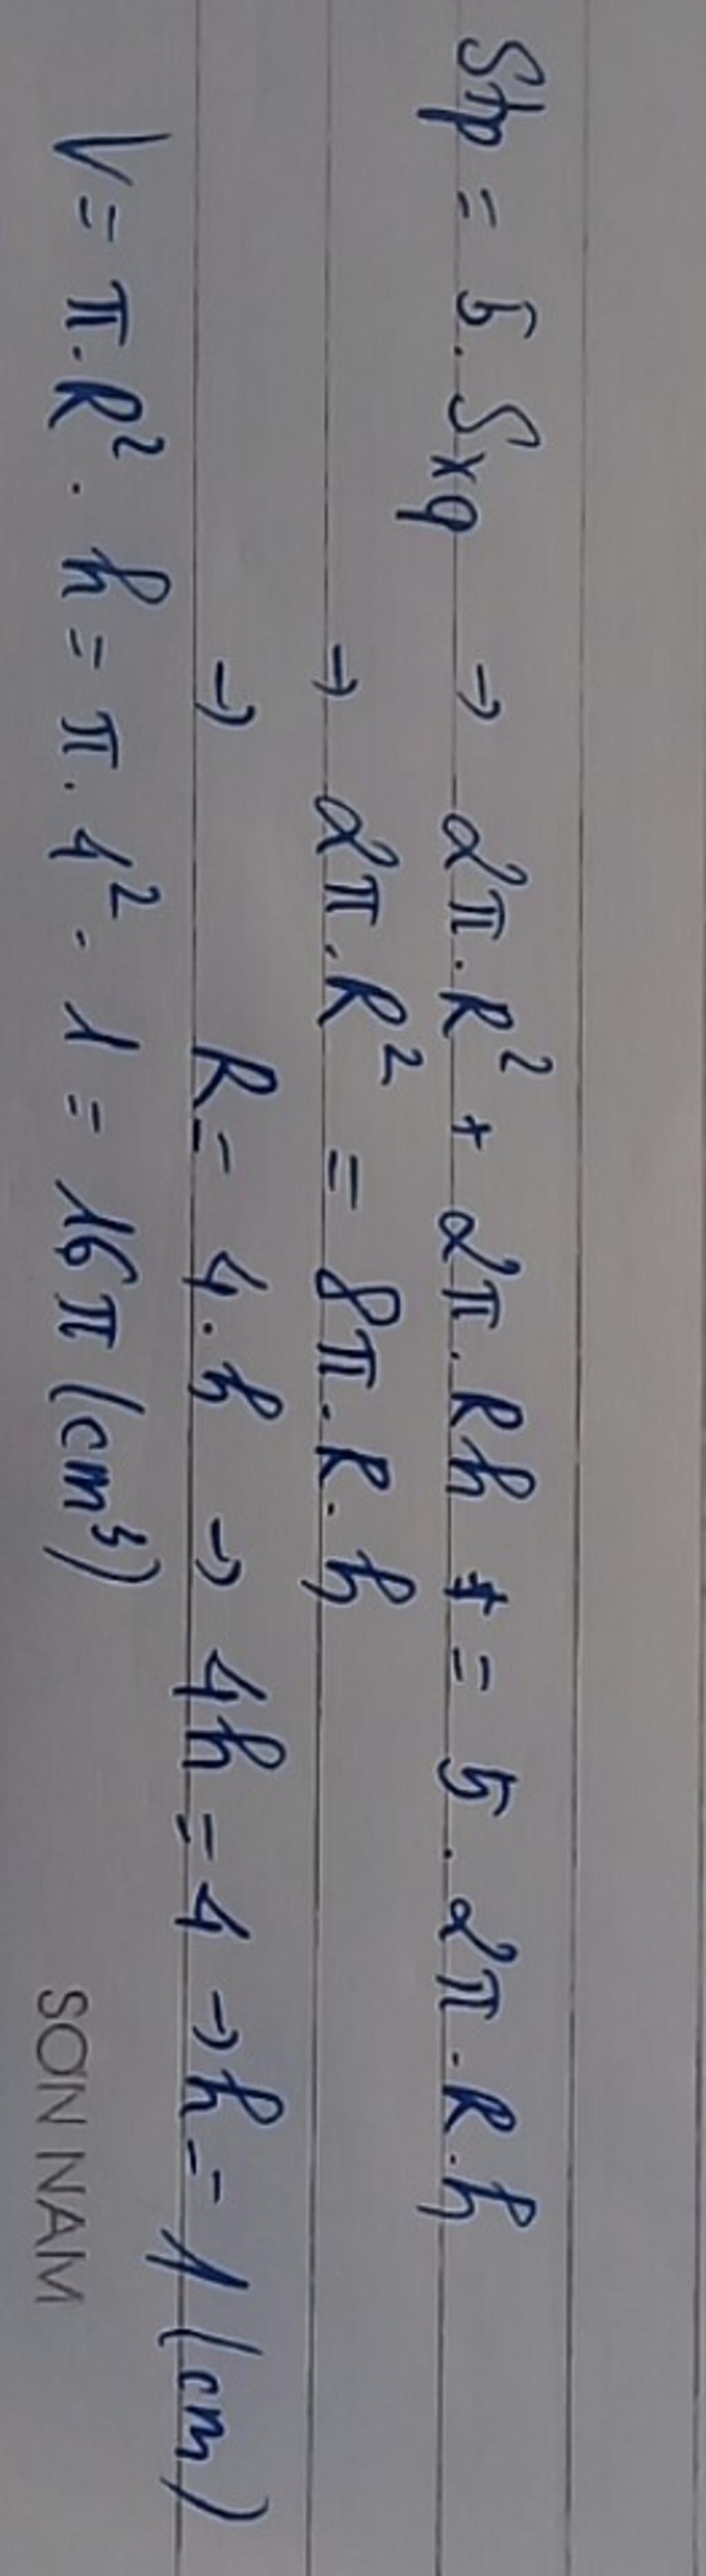 Stp = 5. Sxq → 2π.R² + 2π.Rh = 5.2π.R.h
→ 2π.R² = 8π.R.h
→ R = 4.h → 4h = 4 → h = 1 (cm)
V = π.R².h = π.4².1 = 16π (cm³)
SON NAM